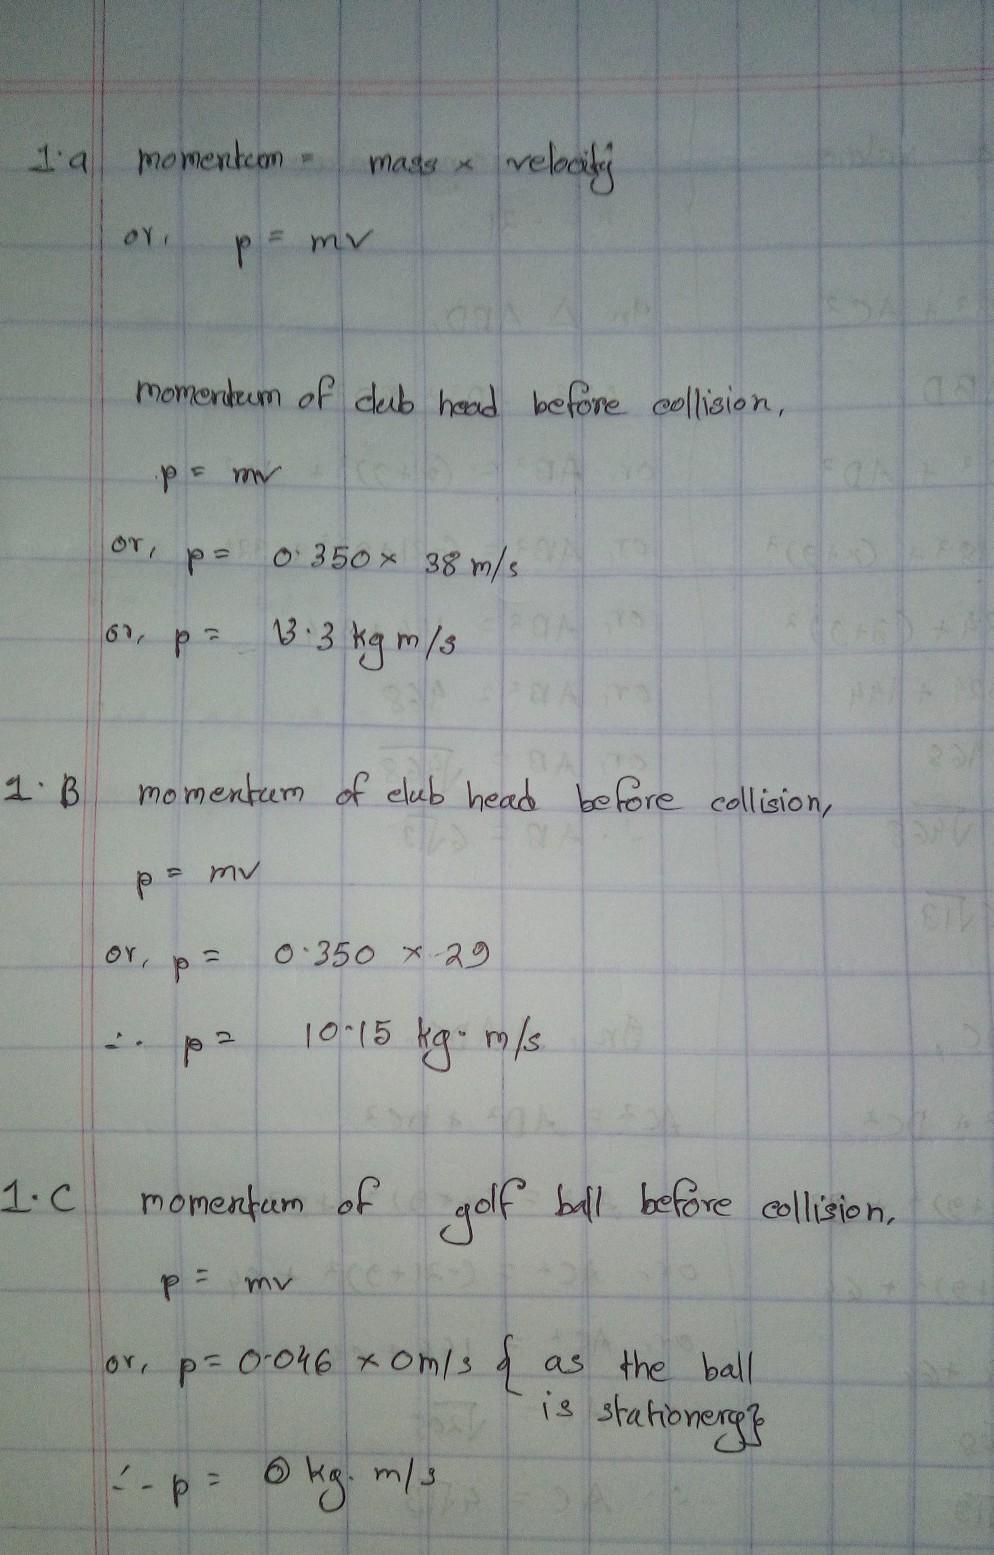 1.a momentum = mass × velocity
or, p = mv
momentum of club head before collision,
p = mv
or, p = 0.350 × 38 m/s
or, p = 13.3 kg m/s
1.B momentum of club head before collision,
p = mv
or, p = 0.350 × 29
∴ p = 10.15 kg. m/s
1.C momentum of golf ball before collision,
p = mv
or, p = 0.046 × 0m/s { as the ball
is stationerg}
∴ p = 0 kg. m/s